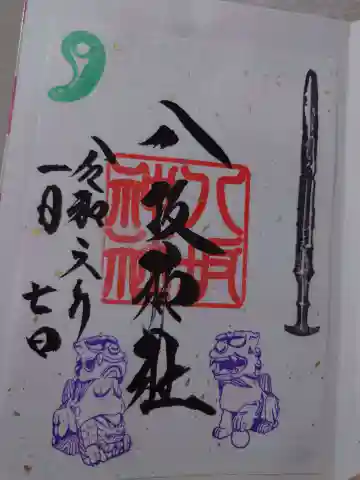 八坂神社
八坂
神社
令和六年
一月七日